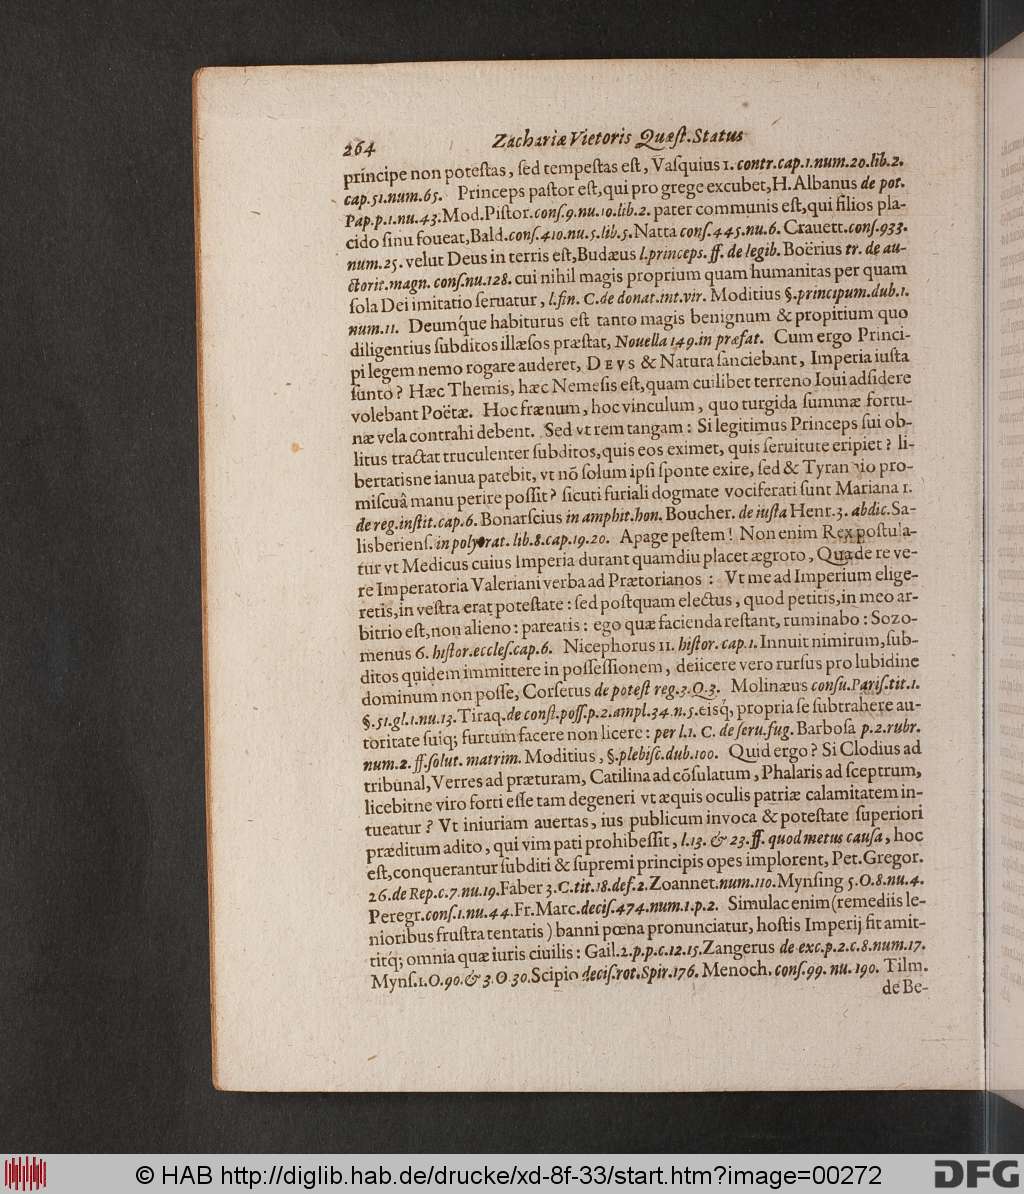 264 Zachariæ Vietoris Quæſt. Status
principe non poteſtas, ſed tempeſtas eſt, Vaſquius 1. contr.cap.1.num.20.lib.2.
cap.51.num.65. Princeps paſtor eſt, qui pro grege excubet, H. Albanus de pot.
Pap.p.1.nu.43. Mod. Piſtor. conſ.9.nu.10.lib.2. pater communis eſt, qui filios pla-
cido ſinu foueat, Bald. conſ.410.nu.5.lib.5. Natta conſ.445.nu.6. Crauett. conſ.933.
num.25. velut Deus in terris eſt, Budæus l.princeps. ff. de legib. Boërius tr. de au-
ctorit.magn. conſ.nu.128. cui nihil magis proprium quam humanitas per quam
ſola Dei imitatio ſeruatur, l.fin. C.de donat.int.vir. Moditius §.principum.dub.1.
num.11. Deumq́ue habiturus eſt tanto magis benignum & propitium quo
diligentius ſubditos illæſos præſtat, Nouella 149.in præfat. Cum ergo Princi-
pi legem nemo rogare auderet, DEVS & Natura ſanciebant, Imperia iuſta
ſunto? Hæc Themis, hæc Nemeſis eſt, quam cuilibet terreno Ioui adſidere
volebant Poëtæ. Hoc frænum, hoc vinculum, quo turgida ſummæ fortu-
næ vela contrahi debent. Sed vt rem tangam: Si legitimus Princeps ſui ob-
litus tractat truculenter ſubditos, quis eos eximet, quis ſeruitute eripiet? li-
bertatisne ianua patebit, vt nõ ſolum ipſi ſponte exire, ſed & Tyran io pro-
miſcuâ manu perire poſſit? ſicuti furiali dogmate vociferati ſunt Mariana 1.
de reg.inſtit.cap.6. Bonarſcius in amphit.hon. Boucher. de iuſta Henr.3. abdic. Sa-
lisberienſ. in polycrat. lib.8.cap.19.20. Apage peſtem! Non enim Rex poſtula-
tur vt Medicus cuius Imperia durant quamdiu placet ægroto, Qua de re ve-
re Imperatoria Valeriani verba ad Prætorianos: Vt me ad Imperium elige-
retis, in veſtra erat poteſtate: ſed poſtquam electus, quod petitis, in meo ar-
bitrio eſt, non alieno: pareatis: ego quæ facienda reſtant, ruminabo: Sozo-
menus 6. hiſtor.eccleſ.cap.6. Nicephorus 11. hiſtor. cap.1. Innuit nimirum, ſub-
ditos quidem immittere in poſſeſſionem, deiicere vero rurſus pro lubidine
dominum non poſſe, Corſetus de poteſt reg.3.Q.3. Molinæus conſu.Pariſ.tit.1.
§.51.gl.1.nu.13. Tiraq. de conſt.poſſ.p.2.ampl.34.n.5. eisq́, propria ſe ſubtrahere au-
toritate ſuiq; furtum facere non licere: per l.1. C. de ſeru.fug. Barboſa p.2.rubr.
num.2. ff.ſolut. matrim. Moditius, §.plebiſc.dub.100. Quid ergo? Si Clodius ad
tribunal, Verres ad præturam, Catilina ad cõſulatum, Phalaris ad ſceptrum,
licebitne viro forti eſſe tam degeneri vt æquis oculis patriæ calamitatem in-
tueatur? Vt iniuriam auertas, ius publicum invoca & poteſtate ſuperiori
præditum adito, qui vim pati prohibeſſit, l.13. & 23. ff. quod metus cauſa, hoc
eſt, conquerantur ſubditi & ſupremi principis opes implorent, Pet. Gregor.
26.de Rep.c.7.nu.19. Faber 3.C.tit.18.def.2. Zoannet.num.110. Mynſing 5.O.8.nu.4.
Peregr.conſ.1.nu.44. Fr. Marc.deciſ.474.num.1.p.2. Simulac enim (remediis le-
nioribus fruſtra tentatis) banni pœna pronunciatur, hoſtis Imperij fit amit-
titq́; omnia quæ iuris ciuilis: Gail.2.p.p.c.12.15. Zangerus de exc.p.2.c.8.num.17.
Mynſ.1.O.90.& 3.O.30. Scipio deciſ.rot.Spir.176. Menoch. conſ.99. nu. 190. Tilm.
de Be-
© HAB http://diglib.hab.de/drucke/xd-8f-33/start.htm?image=00272
DFG